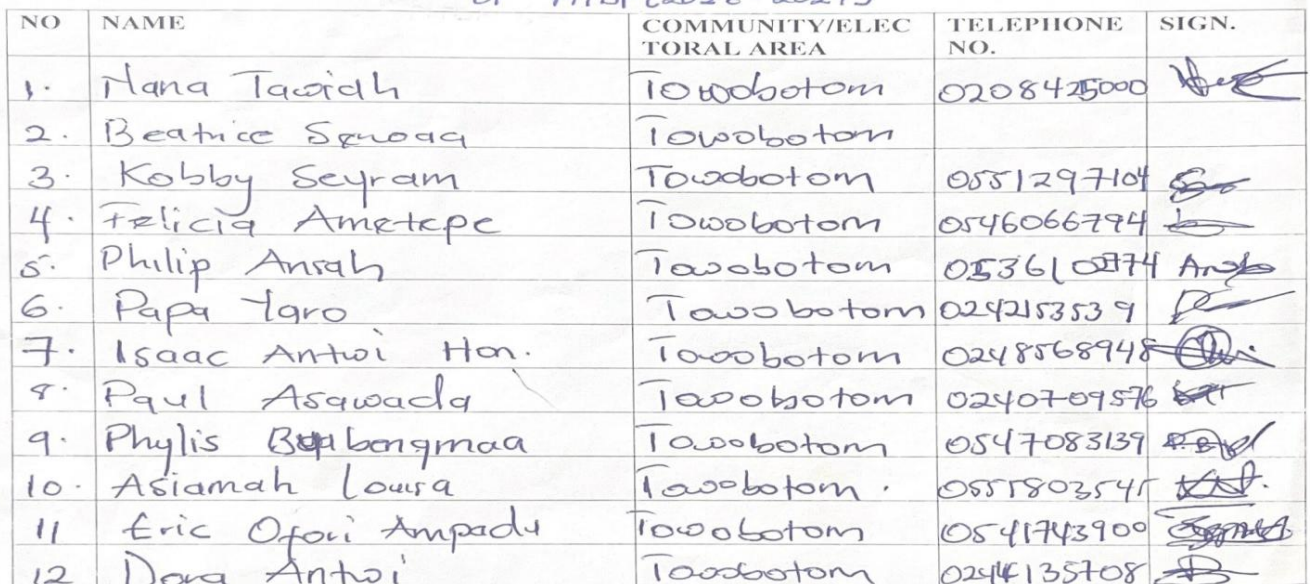 NO NAME COMMUNITY/ELEC TELEPHONE SIGN.
TORAL AREA NO.
1. Nana Tawiah Towobotom 0208425000
2. Beatrice Towobotom
3. Kobby Seyram Towobotom 0551297104
4. Felicia Ametepe Towobotom 0546066794
5. Philip Ansah Towobotom
6. Papa Yaro Towobotom 0242153539
7. Isaac Antwi Hon. Towobotom 0248568948
8. Paul Asawada Towobotom 0240709576
9. Phylis Towobotom 0547083139
10. Asiamah Louisa Towobotom.
11 Eric Ofori Ampadu Towobotom 0541743900
12 Antwi Towobotom 0244135708